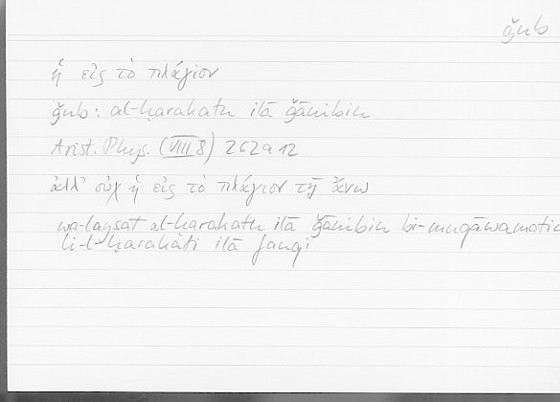 ǧnb
ἡ εἰς τὸ πλάγιον
ǧnb: al-ḥarakatu ilā ǧānibin
Arist. Phys. (VIII 8) 262a12
ἀλλ' οὐχ ἡ εἰς τὸ πλάγιον τῇ ἄνω
wa-laysat al-ḥarakatu ilā ǧānibin bi-muqāwamatin
li-l-ḥarakāti ilā fauqi